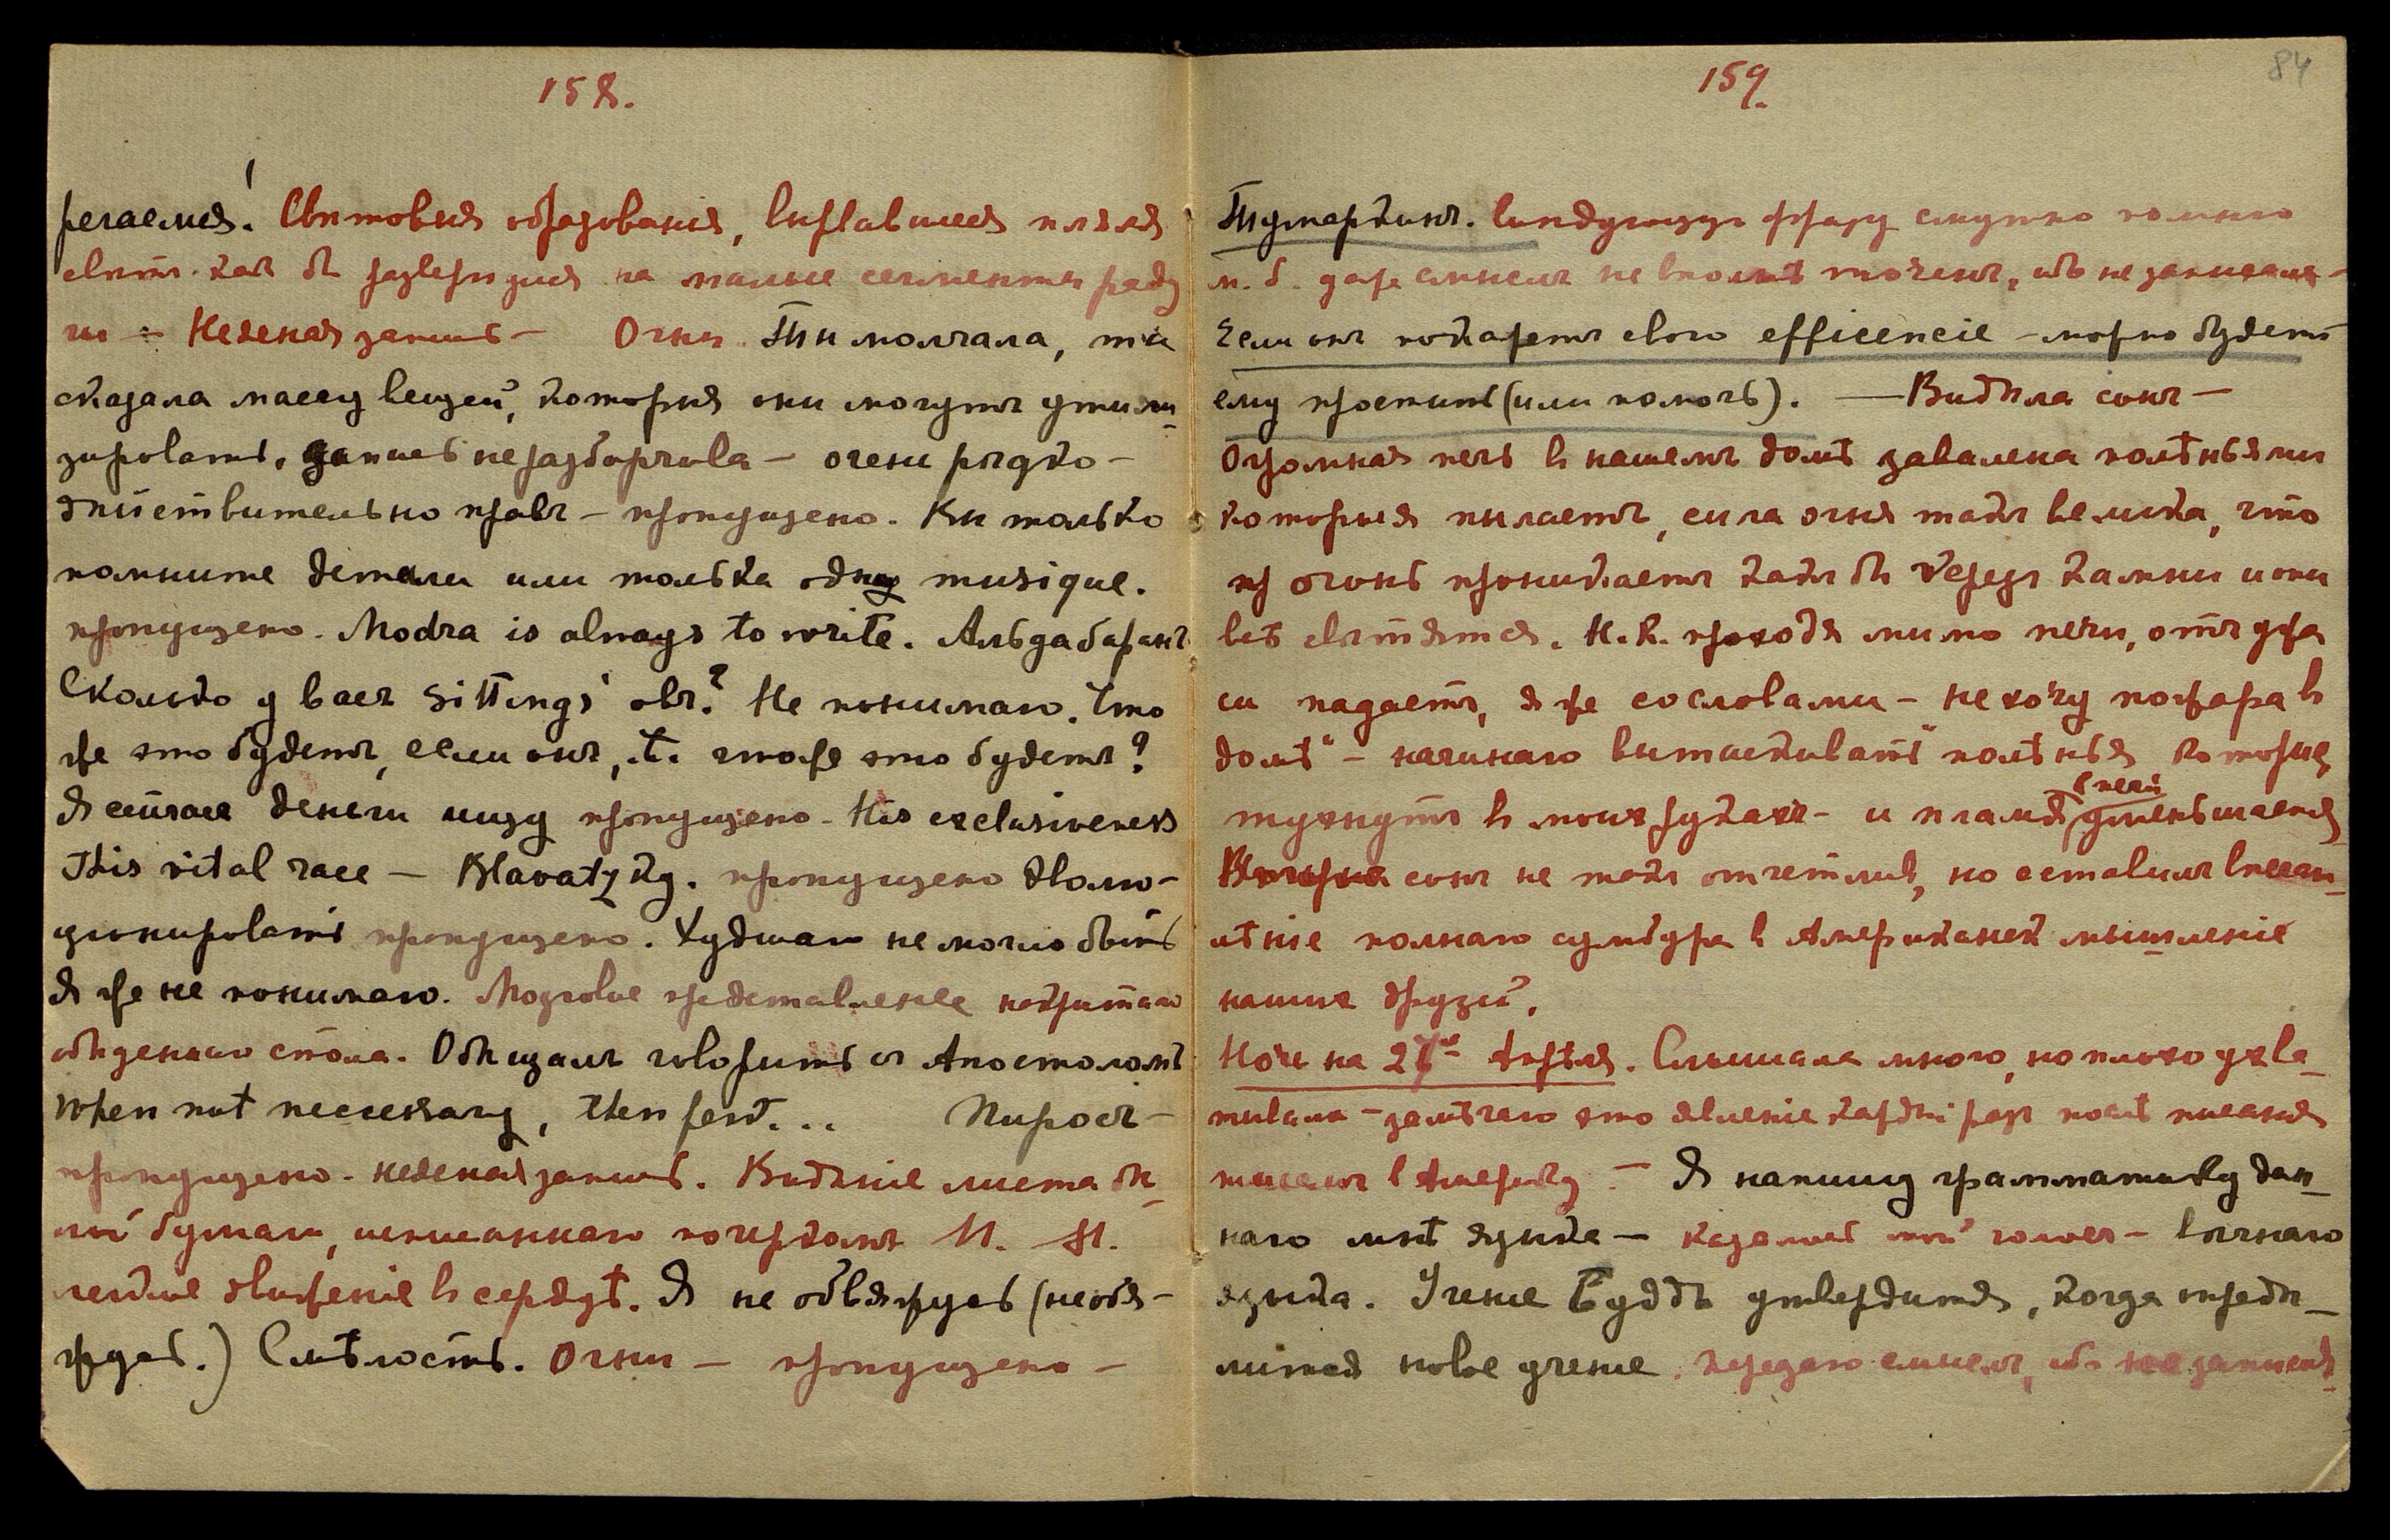 158.
регаемся! Свѣтовыя образованія, вырвавшееся пламя
свѣта как бы разверзшися на малые сегменты раду
ги – Неясная запись – Огни. Ты молчала, ты
сказала массу вещей, которыя они могутъ утили
зировать, запись неразборчива – очень рѣдко –
дѣйствительно правъ – пропущено. Вы только
помните детали или только одну musique.
пропущено. Modra is always to write. Альдабаранъ
Сколько у васъ sittings' овъ? Не понимаю. Что
же это будетъ, если онъ, т. что же это будетъ?
Я деньги ищу пропущено – His exclusiveness
This vital race – Blavatzky. пропущено эволю-
ціонировать пропущено. Худшаго не могло быть
Я же не понимаю. Мозговое представленіе накрытаго
обѣденнаго стола. Обѣщалъ говорить съ Апостоломъ
when not necessary, then Пирость –
пропущено – неясная запись. Видѣніе листа бѣ
лой бумаги, исписаннаго почеркомъ М. М.
легкое движеніе в сердцѣ. Я не обвяжусь (необя-
жусь.) Смѣлость. Огни – пропущено –
159.
84
Тумаркинъ. Слѣдующую фразу смутно помню
м. б. даже смыслъ не вполнѣ точенъ, ибо не записала –
Если онъ покажетъ свою efficencie – можно будетъ
ему простить (или помочь). – Видѣла сонъ –
Огромная печь в нашемъ домѣ завалена полѣньями
которыя пылаетъ, сила огня такъ велика, что
огонь проникаетъ какъ бы через камни и они
всѣ свѣтятся. Н.К. проходя мимо печи, отъ жа
ра падаетъ, я же со словами – "не хочу пожара в
домѣ" – начинаю вытаскивать полѣнья которые
тухнутъ в моихъ рукахъ – и пламя в печи уменьшается
сонъ не такъ отчетливъ, но оставилъ впечат
лѣніе полнаго сумбура в Американск мышленіе
нашихъ друзей.
Ночь на 27ое Апрѣля. Слышала много, но плохо ухва
тывала – замѣчаю это явленіе каждый разъ послѣ писанія
писемъ в Америку – Я напишу грамматику дан
наго мнѣ языка – казалось мой голосъ – вѣчнаго
языка. Ученіе Буддъ утвердится, когда опредѣ
лится новое ученіе. Передаю смыслъ, ибо не записала